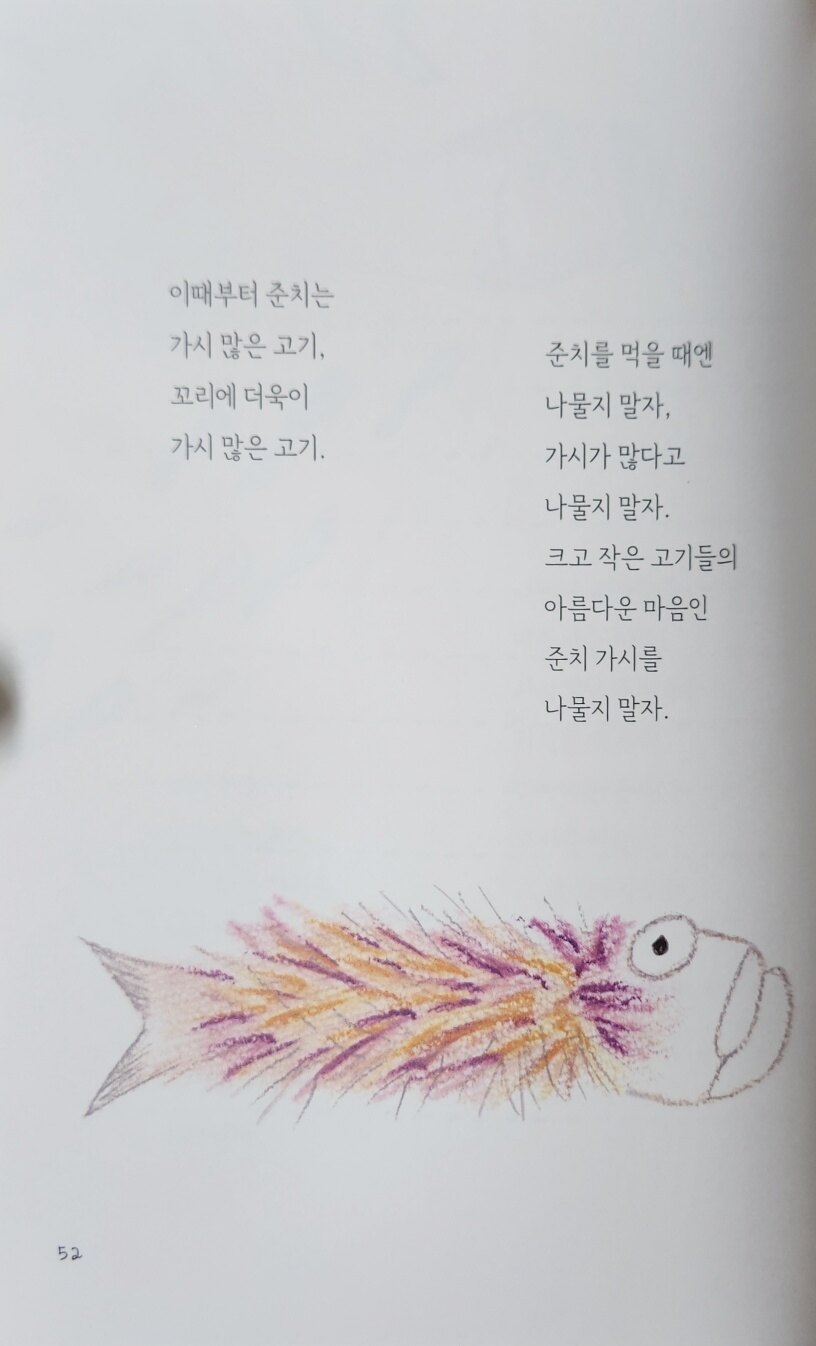 이때부터 준치는
가시 많은 고기,
꼬리에 더욱이
가시 많은 고기.
준치를 먹을 때엔
나물지 말자,
가시가 많다고
나물지 말자.
크고 작은 고기들의
아름다운 마음인
준치 가시를
나물지 말자.
52